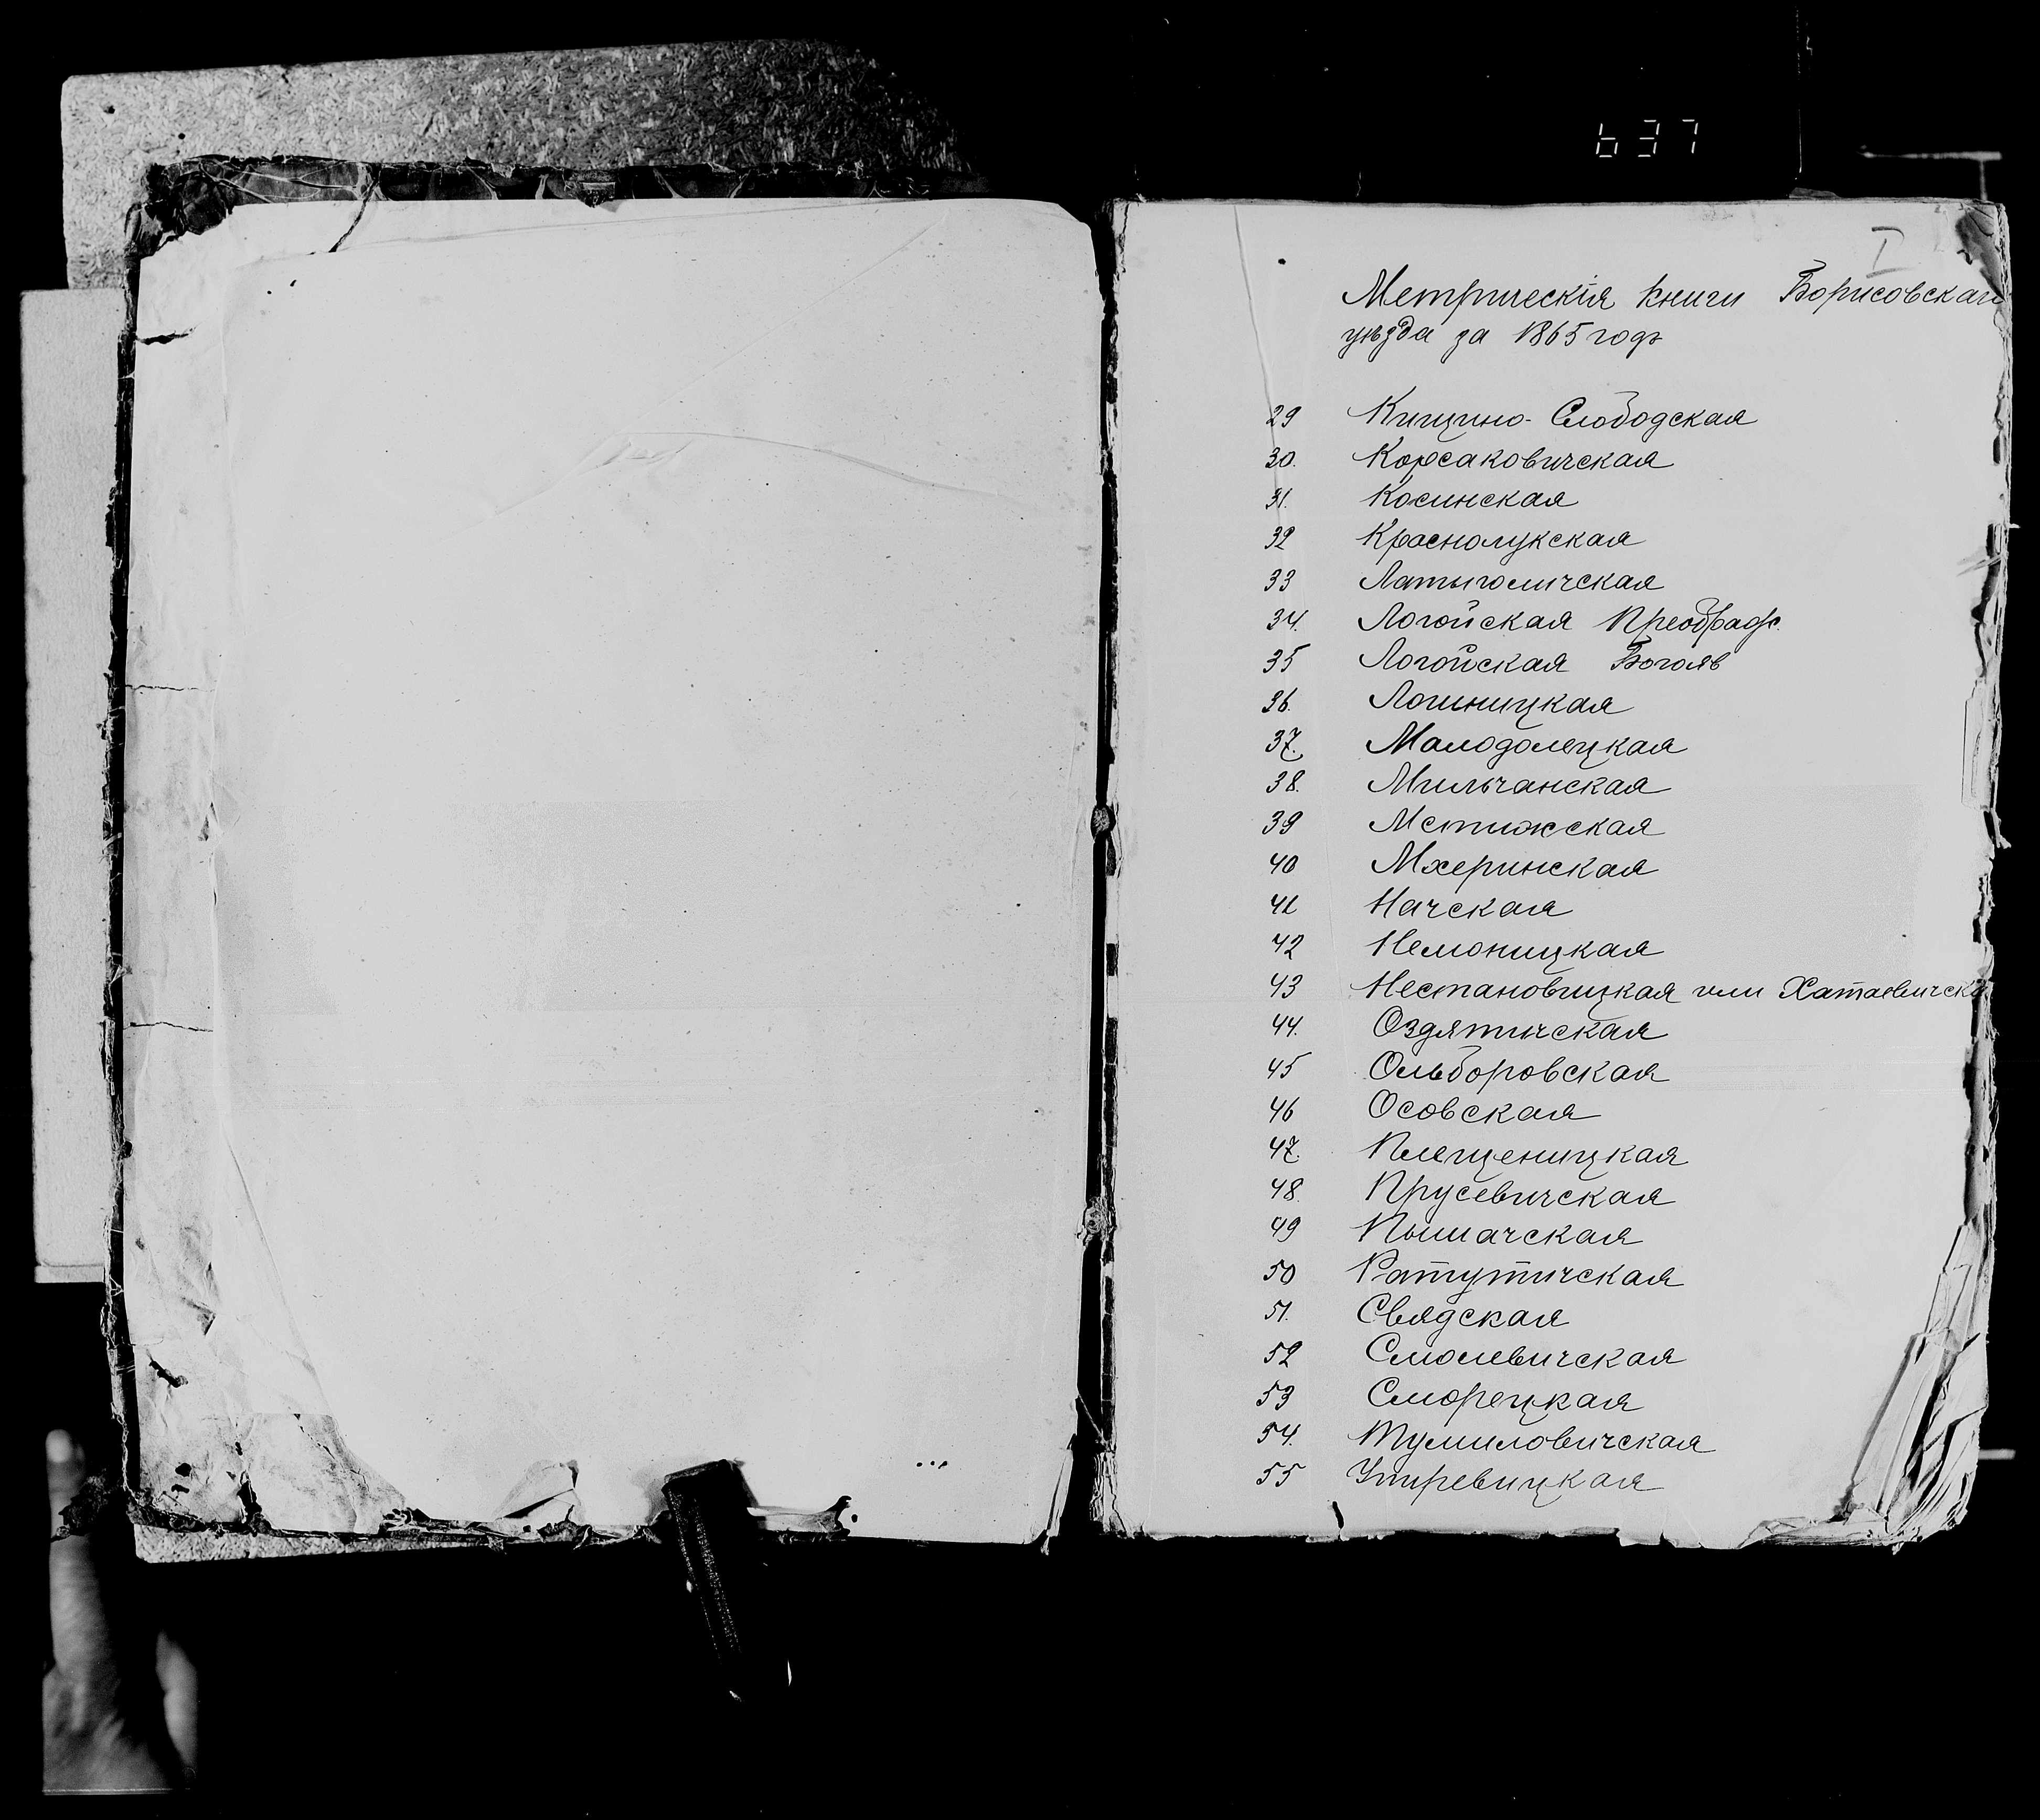 637
I
Метрическія книги Борисовскаго
уѣзда за 1865 годъ
29 Кищино-Слободская
30. Корсаковичская
31. Косинская
32 Краснолукская
33 Латыголичская
34. Логойская Преображ.
35 Логойская Богояв
36. Лошницкая
37. Малодолецкая
38. Мильчанская
39 Мстижская
40 Мхеринская
41 Начская
42 Немоницкая
43 Нестановицкая или Хатаевичска
44. Оздятичская
45 Ольборовская
46 Осовская
47. Плещеницкая
48. Прусевичская
49 Пышачская
50 Ратутичская
51. Свядская
52 Смолевичская
53 Сморецкая
54. Тумиловичская
55 Утревицкая